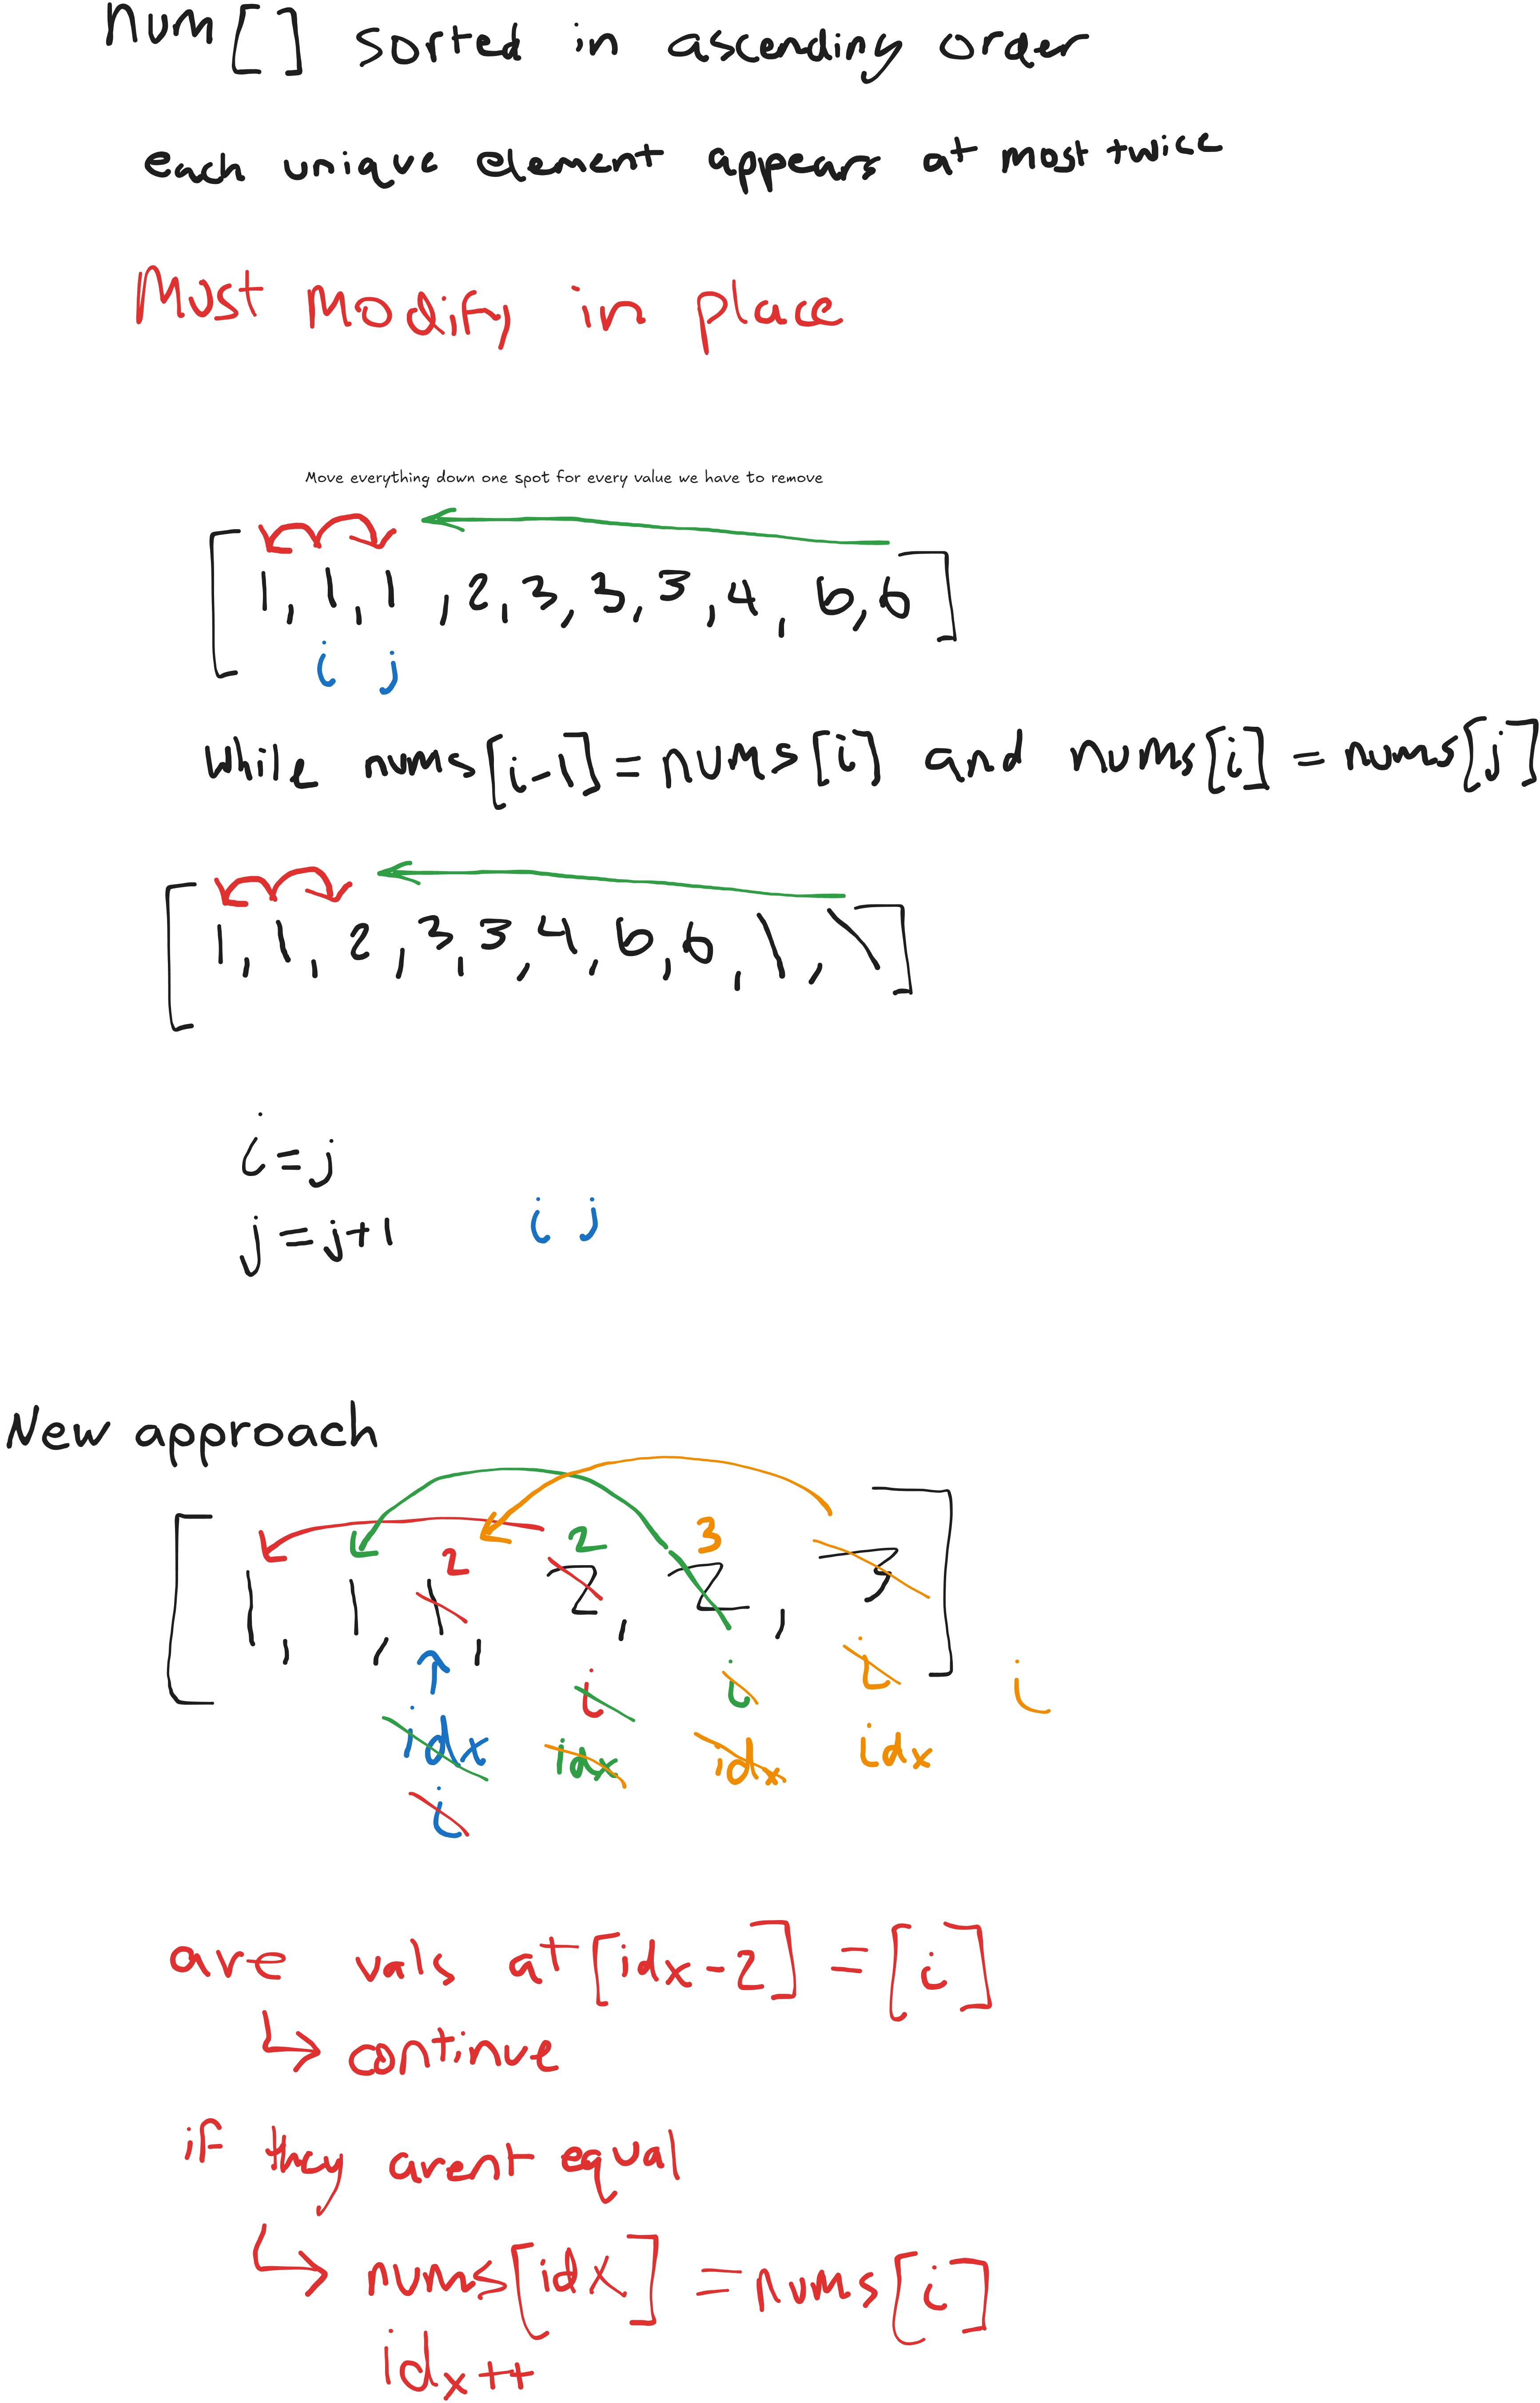 num[] sorted in ascending order
each unique element appears at most twice
Must Modify in place
Move everything down one spot for every value we have to remove
[1, 1, 1, 2, 3, 3, 3, 4, 6, 6]
i j
while nums[i-1] = nums[i] and nums[i] = nums[j]
[1, 1, 2, 3, 3, 4, 6, 6, \, \]
i = j
j = j+1 i j
New approach
2 2 3
[1, 1, 1, 2, 2, 3]
i i i i
idx idx idx idx
i
are vals at [idx-2] = [i]
continue
if they arent equal
nums[idx] = nums[i]
idx++